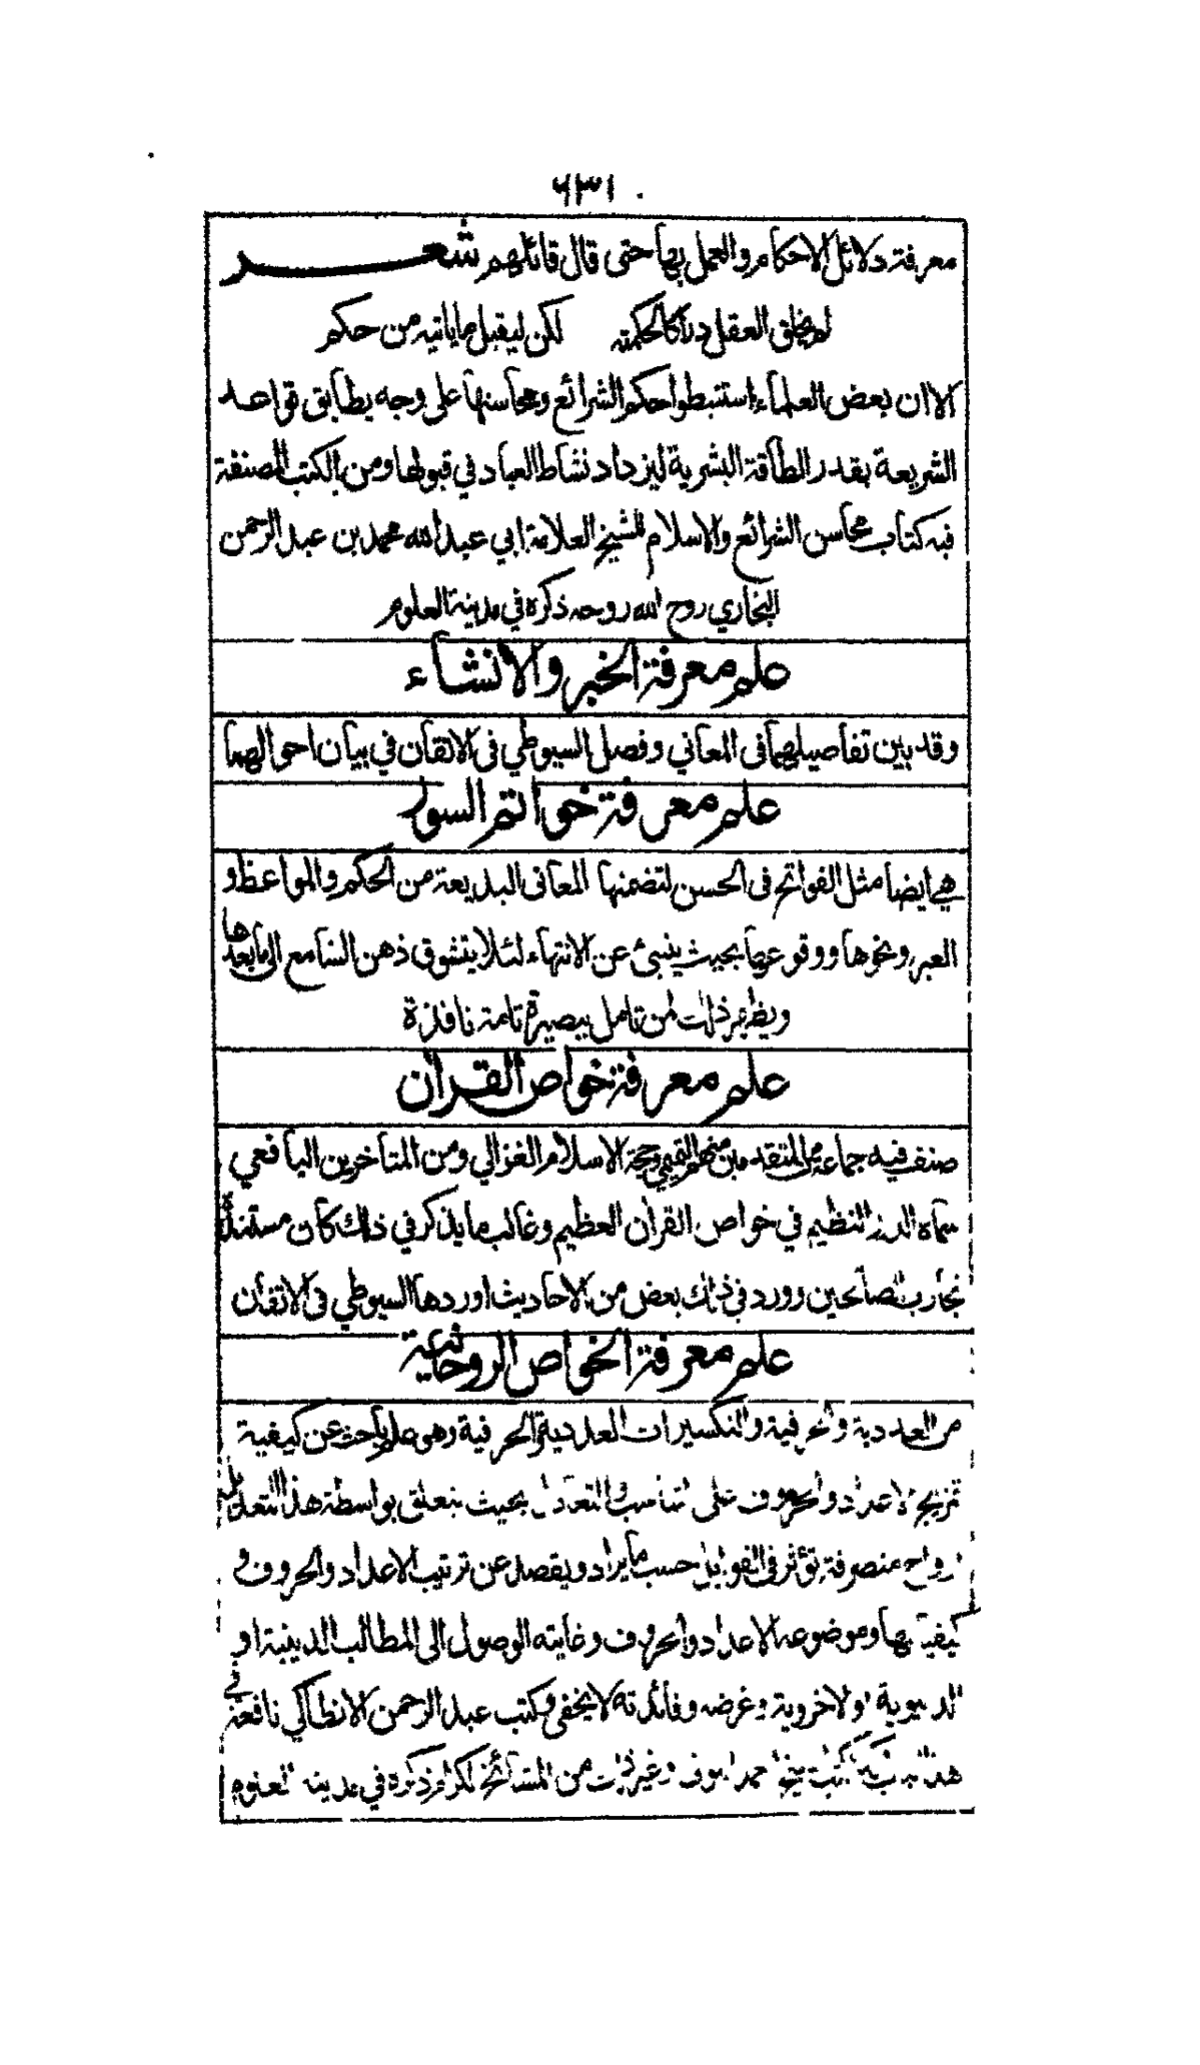 ٦٣١
معرفة دلائل الاحكام والعمل بها حتى قال قائلهم شعر
لم يخلق العقل دراكا لحكمته لكن ليقبل ما ياتيه من حكم
الا ان بعض العلماء استنبطوا حكم الشرائع ومحاسنها على وجه يطابق قواعد
الشريعة بقدر الطاقة البشرية ليزداد نشاط العباد في قبولها ومن الكتب المصنفة
فيه كتاب محاسن الشرائع والاسلام للشيخ العلامة ابي عبد الله محمد بن عبد الرحمن
البخاري روح الله روحه ذكره في مدينة العلوم
علم معرفة الخبر والانشاء
وقد بين تفاصيلهما في المعاني وفصل السيوطي في الاتقان في بيان احوالهما
علم معرفة خواتم السور
هي ايضا مثل الفواتح في الحسن لتضمنها المعاني البديعة من الحكم والمواعظ و
العبر ونحوها ووقوعها بحيث ينبئ عن الانتهاء لئلا يتشوق ذهن السامع الى ما بعدها
ويظهر ذلك لمن تامل ببصيرة تامة نافذة
علم معرفة خواص القرآن
صنف فيه جماعة من المتقدمين منهم التميمي وحجة الاسلام الغزالي ومن المتاخرين اليافعي
سماه الدر النظيم في خواص القرآن العظيم وغالب ما يذكر في ذلك كان مستنده
تجارب الصالحين وورد في ذلك بعض من الاحاديث اوردها السيوطي في الاتقان
علم معرفة الخواص الروحانية
من العددية والحرفية والتكسيرات العددية والحرفية وهو علم باحث عن كيفية
تمزيج الاعداد والحروف على التناسب والتعادل بحيث يتعلق بواسطة هذا التعديل
ارواح متصرفة تؤثر في القوابل حسب ما يراد ويقصد عن ترتيب الاعداد والحروف و
كيفيتها وموضوعه الاعداد والحروف وغايته الوصول الى المطالب الدينية او
الدنيوية او الاخروية وغرضه وفائدته لا يخفى وكتب عبد الرحمن الانطاكي نافعة في
هذا الباب وكتب الشيخ احمد البوني وغير ذلك من المشائخ الكرام ذكره في مدينة العلوم